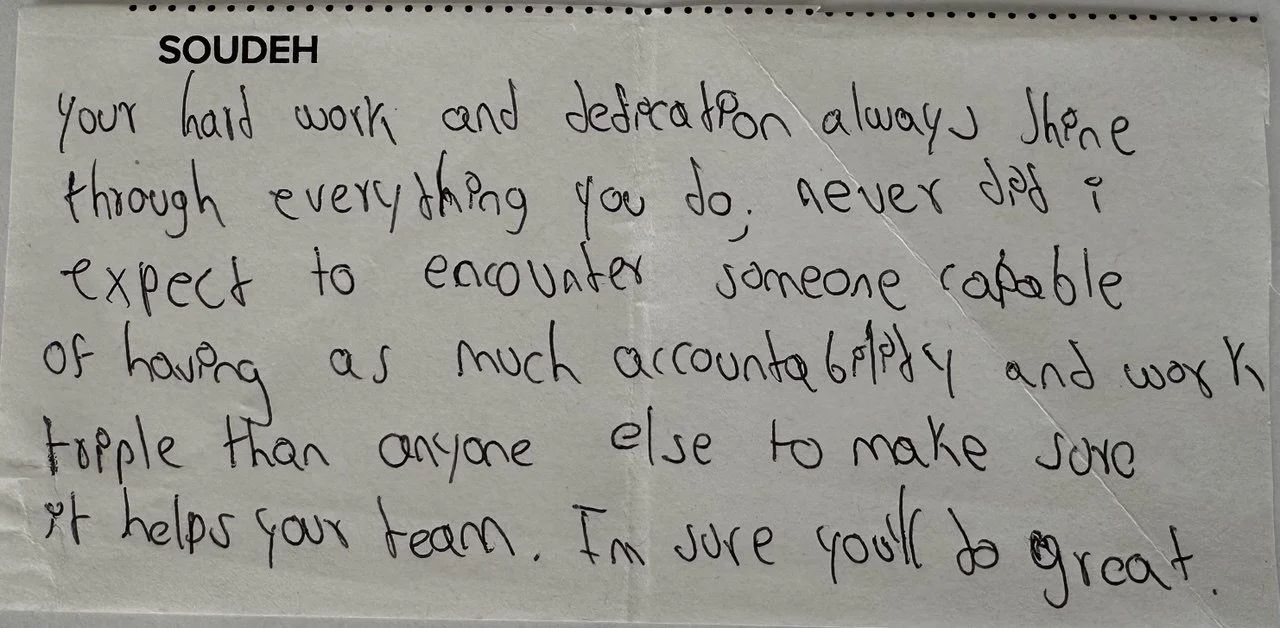 SOUDEH
your hard work and dedication always shine
through everything you do; never did i
expect to encounter someone capable
of having as much accountability and work
tripple than anyone else to make sure
it helps your team. I'm sure you'll do great.